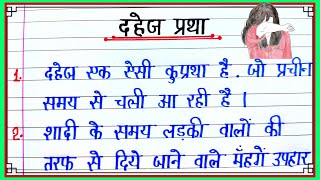 दहेज प्रथा
1. दहेज एक ऐसी कुप्रथा है. जो प्रचीन
समय से चली आ रही है।
2. शादी के समय लड़की वालों की
तरफ से दिये जाने वाले मँहगें उपहार